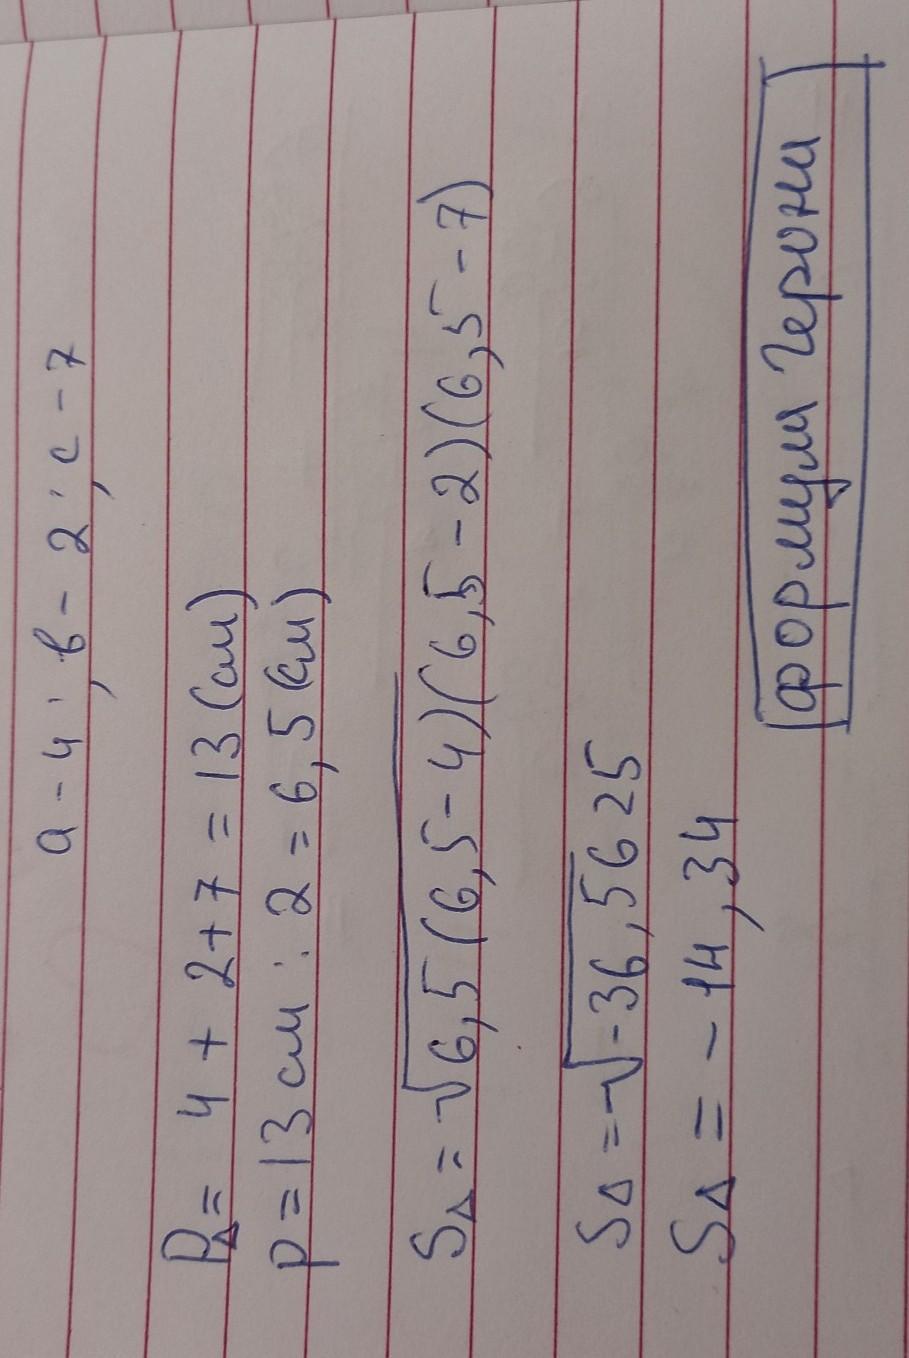 a - 4 ; в - 2 ; с - 7
P△ = 4 + 2 + 7 = 13 (см)
p = 13 см : 2 = 6,5 (см)
S△ = √6,5 (6,5 - 4) (6,5 - 2) (6,5 - 7)
S△ = √-36,5625
S△ = - 14,34
формула Герона